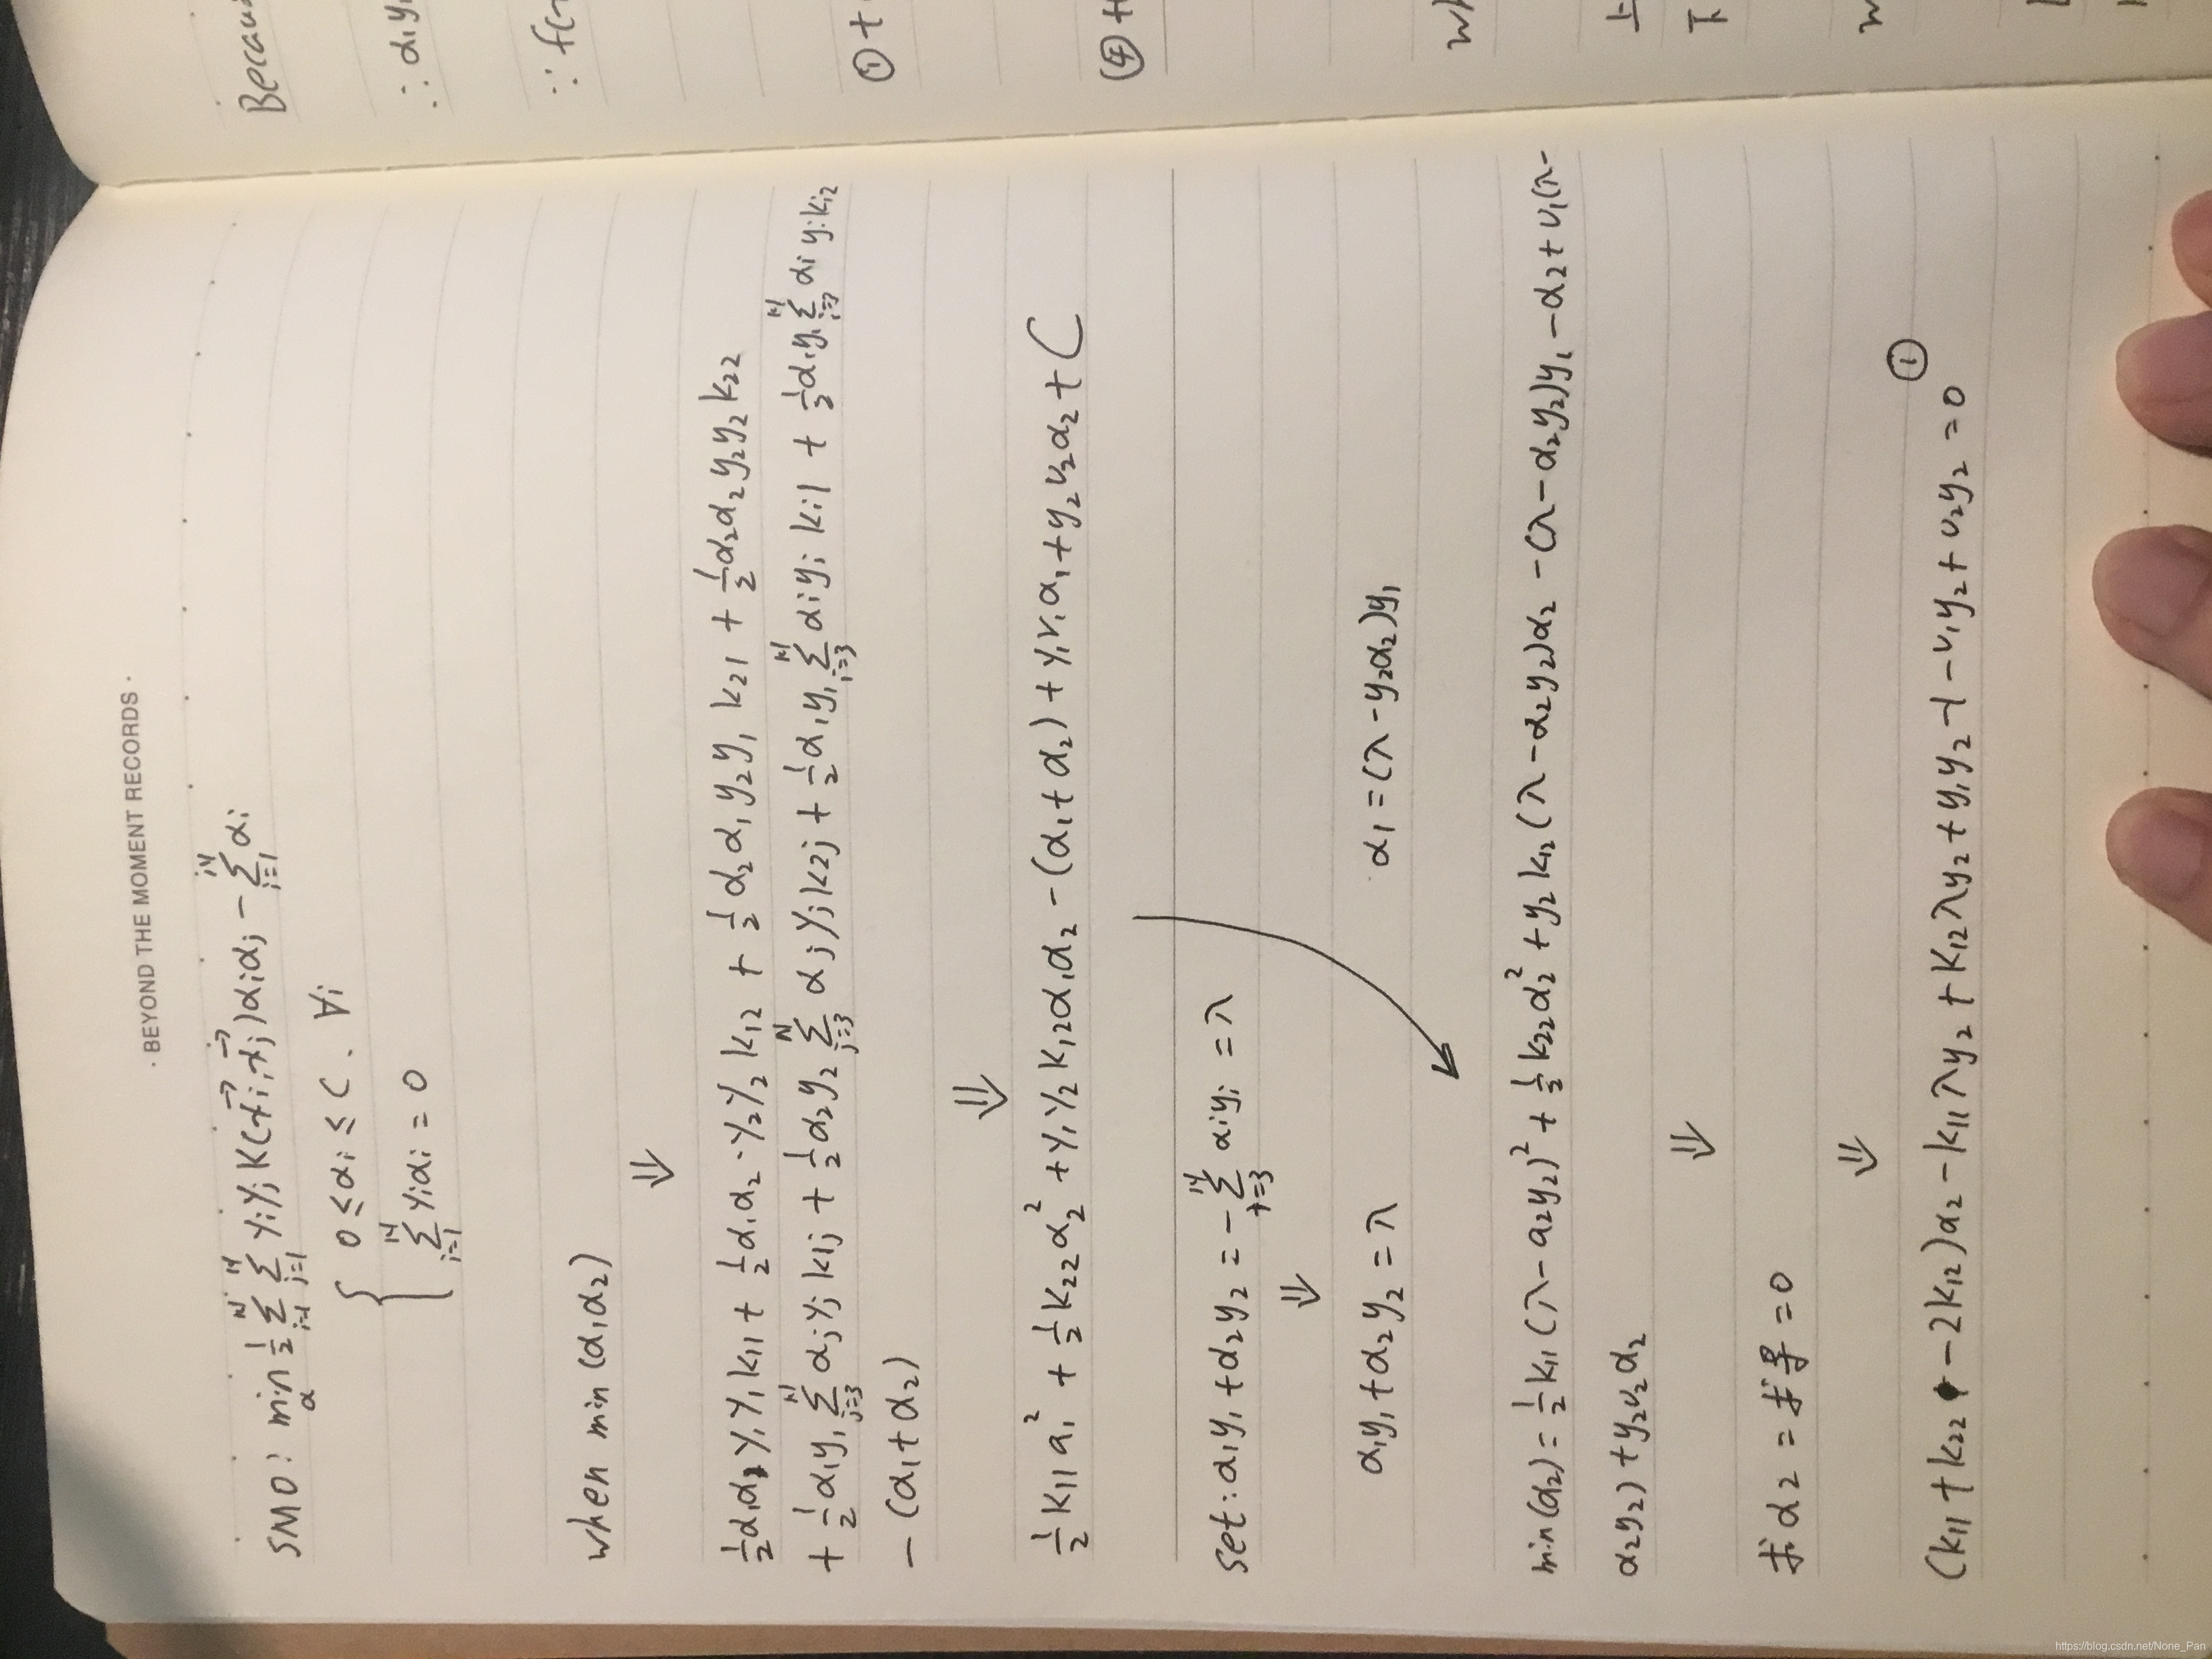 · BEYOND THE MOMENT RECORDS ·
SMO: min_α ½ Σ_{i=1}^N Σ_{j=1}^N yiyjK(x⃗i,x⃗j)αiαj − Σ_{i=1}^N αi
{ 0≤αi≤C. ∀i
Σ_{i=1}^N yiαi = 0
when min(α1α2)
⇓
½α1α1y1y1k11 + ½α1α2·y2y2k12 + ½α2α1y2y1k21 + ½α2α2y2y2k22
+ ½α1y1 Σ_{j=3}^N αjyjk1j + ½α2y2 Σ_{j=3}^N αjyjk2j + ½α1y1 Σ_{i=3}^N αiyiki1 + ½α1y1 Σ_{i=3}^N αiyiki2
− (α1+α2)
⇓
½k11a1² + ½k22α2² + y1y2k12α1α2 − (α1+α2) + y1v1α1 + y2v2α2 + C
set: α1y1+α2y2 = − Σ_{i=3}^N αiyi = λ
⇓
α1y1+α2y2 = λ α1 = (λ−y2α2)y1
min(α2) = ½k11(λ−a2y2)² + ½k22α2² + y2k12(λ−α2y2)α2 − (λ−α2y2)y1 − α2 + v1(λ−
α2y2) + y2v2α2
⇓
求α2 = 求导 = 0
⇓
(k11+k22−2k12)α2 − k11λy2 + k12λy2 + y1y2 − 1 − v1y2 + v2y2 = 0 ①
Becau
∴ α1y
∵ f(
① t
④ t
wh
上
下
w
https://blog.csdn.net/None_Pan